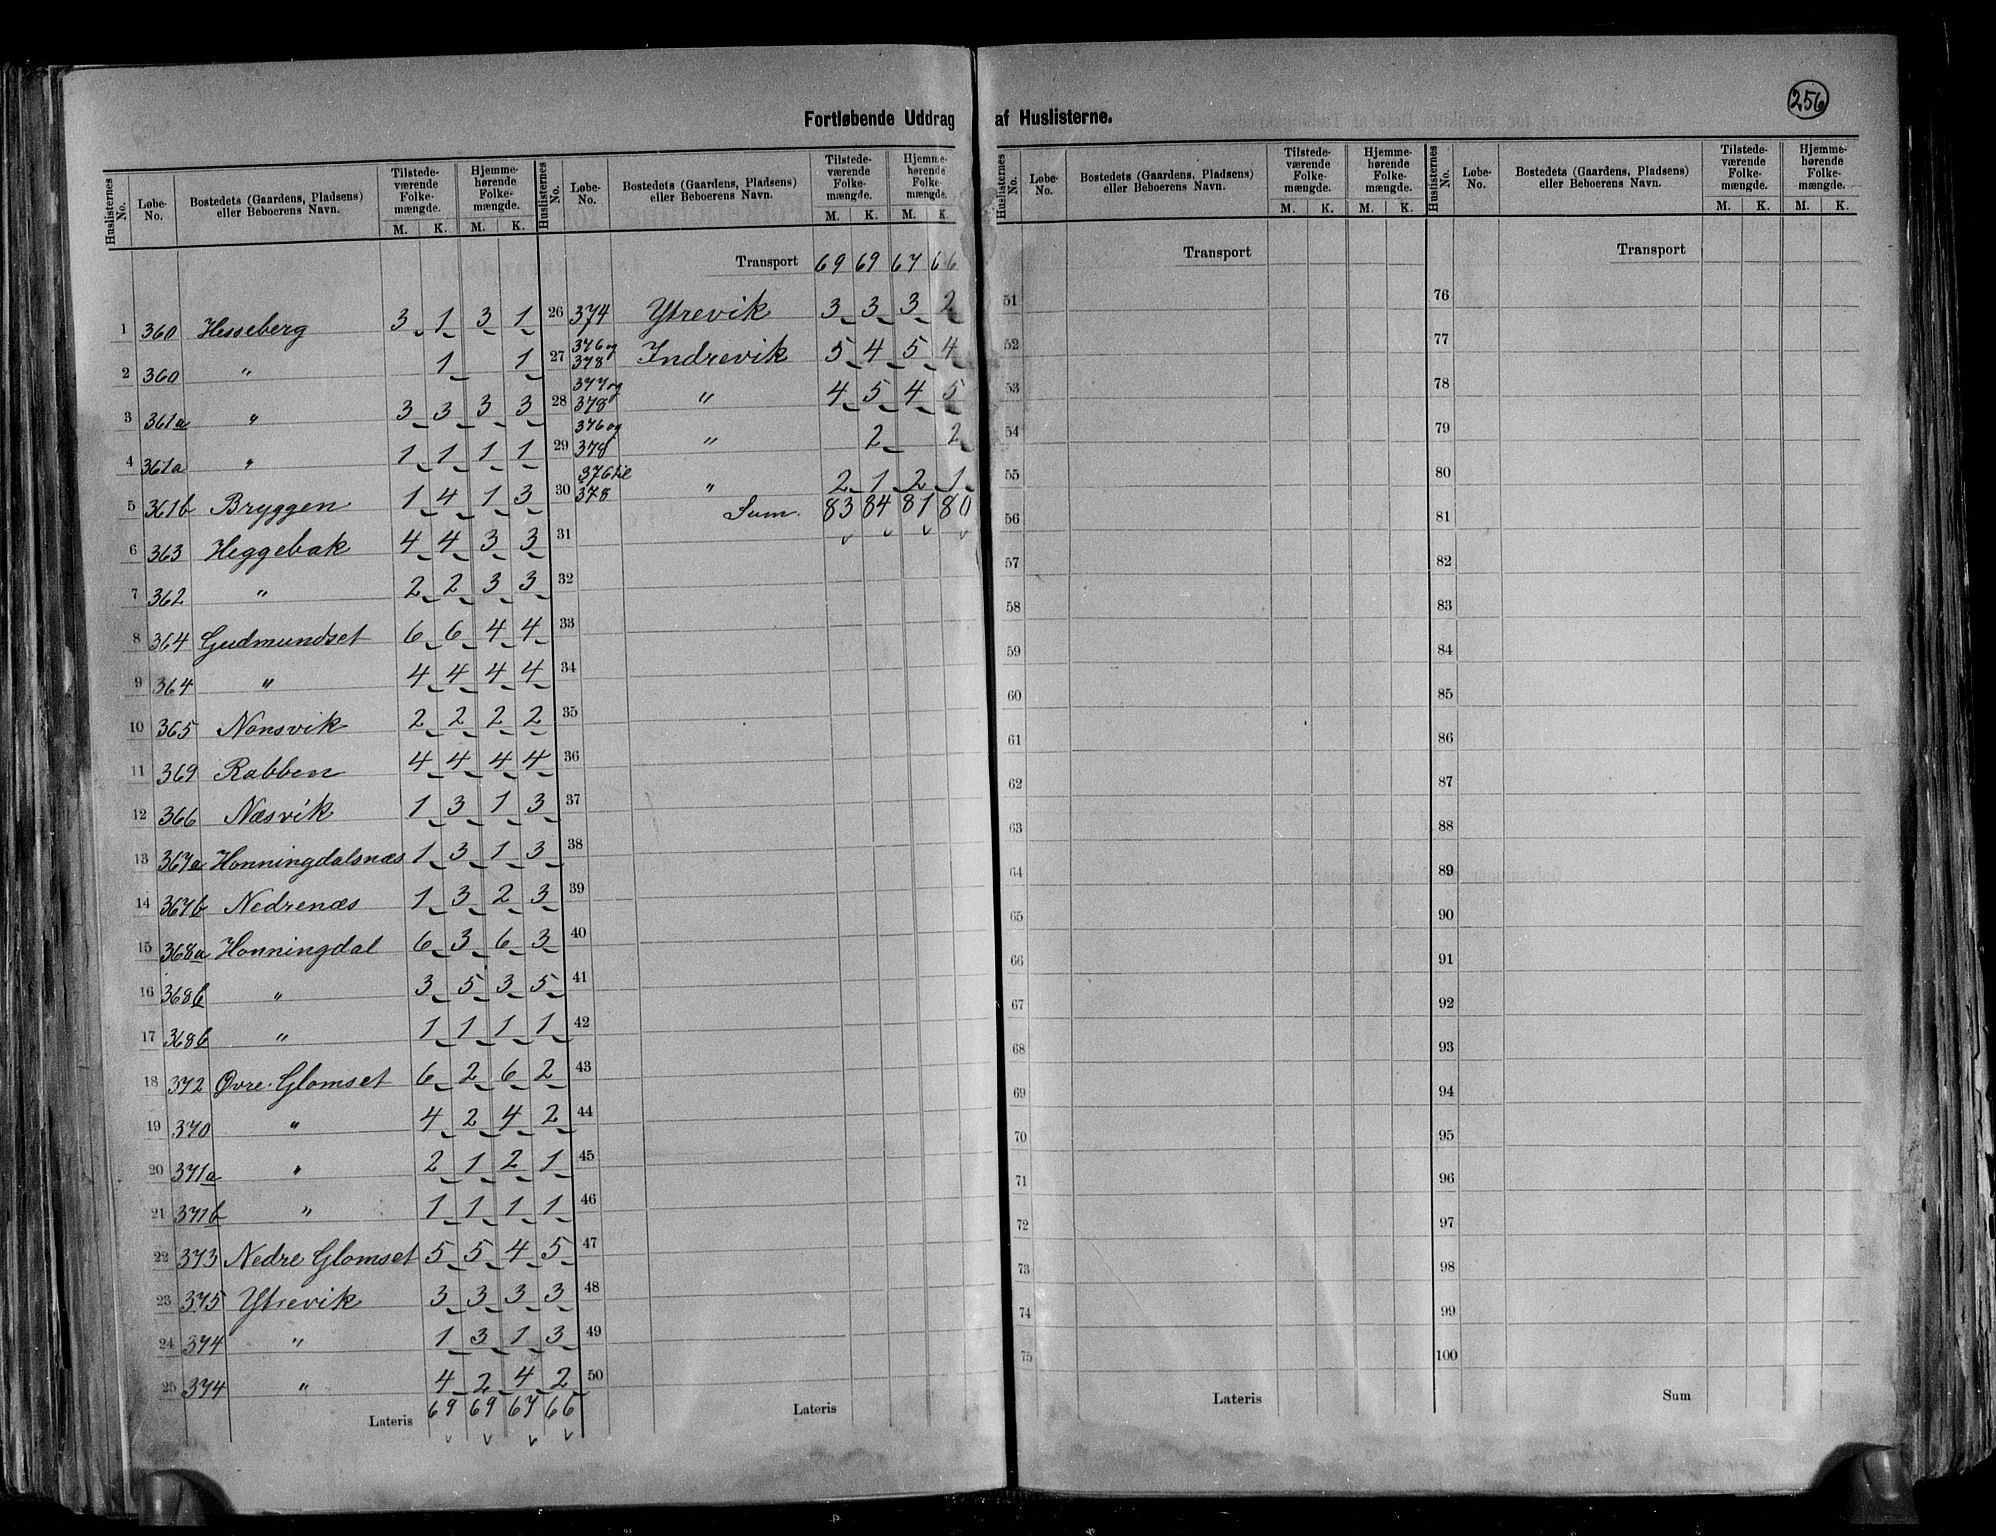 256
Fortløbende Uddrag af Huslisterne.
Huslisternes No. Løbe-No. Bostedets (Gaardens, Pladsens) eller Beboerens Navn. Tilstede-værende Folke-mængde. M. K. Hjemme-hørende Folke-mængde. M. K.
1 360 Hesseberg 3 1 3 1
2 360 " 1 1
3 361a " 3 3 3 3
4 361a " 1 1 1 1
5 361b Bryggen 1 4 1 3
6 363 Heggebak 4 4 3 3
7 362 " 2 2 3 3
8 364 Gudmundset 6 6 4 4
9 364 " 4 4 4 4
10 365 Nonsvik 2 2 2 2
11 369 Rabben 4 4 4 4
12 366 Næsvik 1 3 1 3
13 367a Honningdalsnæs 1 3 1 3
14 367b Nedrenæs 1 3 2 3
15 368a Honningdal 6 3 6 3
16 368b " 3 5 3 5
17 368b " 1 1 1 1
18 372 Øvre Glomset 6 2 6 2
19 370 " 4 2 4 2
20 371a " 2 1 2 1
21 371b " 1 1 1 1
22 373 Nedre Glomset 5 5 4 5
23 375 Ytrevik 3 3 3 3
24 374 " 1 3 1 3
25 374 " 4 2 4 2
Lateris 69 69 67 66
Huslisternes No. Løbe-No. Bostedets (Gaardens, Pladsens) eller Beboerens Navn. Tilstede-værende Folke-mængde. M. K. Hjemme-hørende Folke-mængde. M. K.
Transport 69 69 67 66
26 374 Ytrevik 3 3 3 2
27 376 og 378 Indrevik 5 4 5 4
28 377 og 378 " 4 5 4 5
29 376 og 378 " 2 2
30 376 til 378 " 2 1 2 1
Sum. 83 84 81 80
31
32
33
34
35
36
37
38
39
40
41
42
43
44
45
46
47
48
49
50
Lateris
Huslisternes No. Løbe-No. Bostedets (Gaardens, Pladsens) eller Beboerens Navn. Tilstede-værende Folke-mængde. M. K. Hjemme-hørende Folke-mængde. M. K.
Transport
51
52
53
54
55
56
57
58
59
60
61
62
63
64
65
66
67
68
69
70
71
72
73
74
75
Lateris
Huslisternes No. Løbe-No. Bostedets (Gaardens, Pladsens) eller Beboerens Navn. Tilstede-værende Folke-mængde. M. K. Hjemme-hørende Folke-mængde. M. K.
Transport
76
77
78
79
80
81
82
83
84
85
86
87
88
89
90
91
92
93
94
95
96
97
98
99
100
Sum